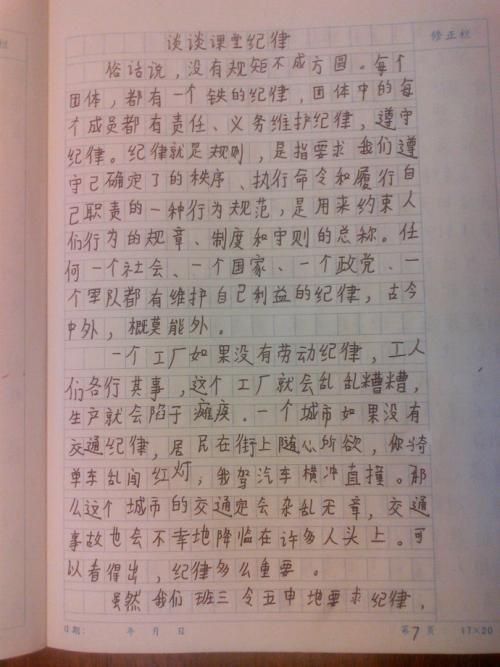 修正栏
谈谈课堂纪律
俗话说，没有规矩不成方圆。每个
团体，都有一个铁的纪律，团体中的每
个成员都有责任、义务维护纪律，遵守
纪律。纪律就是规则，是指要求我们遵
守己确定了的秩序、执行命令和履行自
己职责的一种行为规范，是用来约束人
们行为的规章、制度和守则的总称。任
何一个社会、一个国家、一个政党、一
个军队都有维护自己利益的纪律，古今
中外，概莫能外。
一个工厂如果没有劳动纪律，工人
们各行其事，这个工厂就会乱乱糟糟，
生产就会陷于瘫痪．一个城市如果没有
交通纪律，居民在街上随心所欲，你骑
单车乱闯红灯，我驾汽车横冲直撞。那
么这个城市的交通定会杂乱无章，交通
事故也会不幸地降临在许多人头上。可
以看得出，纪律多么重要。
虽然我们班三令五申地要求纪律，
日期： 年 月 日 第7页 17×20